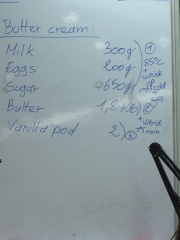 Butter cream:
Milk 300g
Eggs 200g
Sugar 650g
Butter 1,2 KG
Vanilla pod 2
① 85°C + whisk
②
③ + whisk 15 min